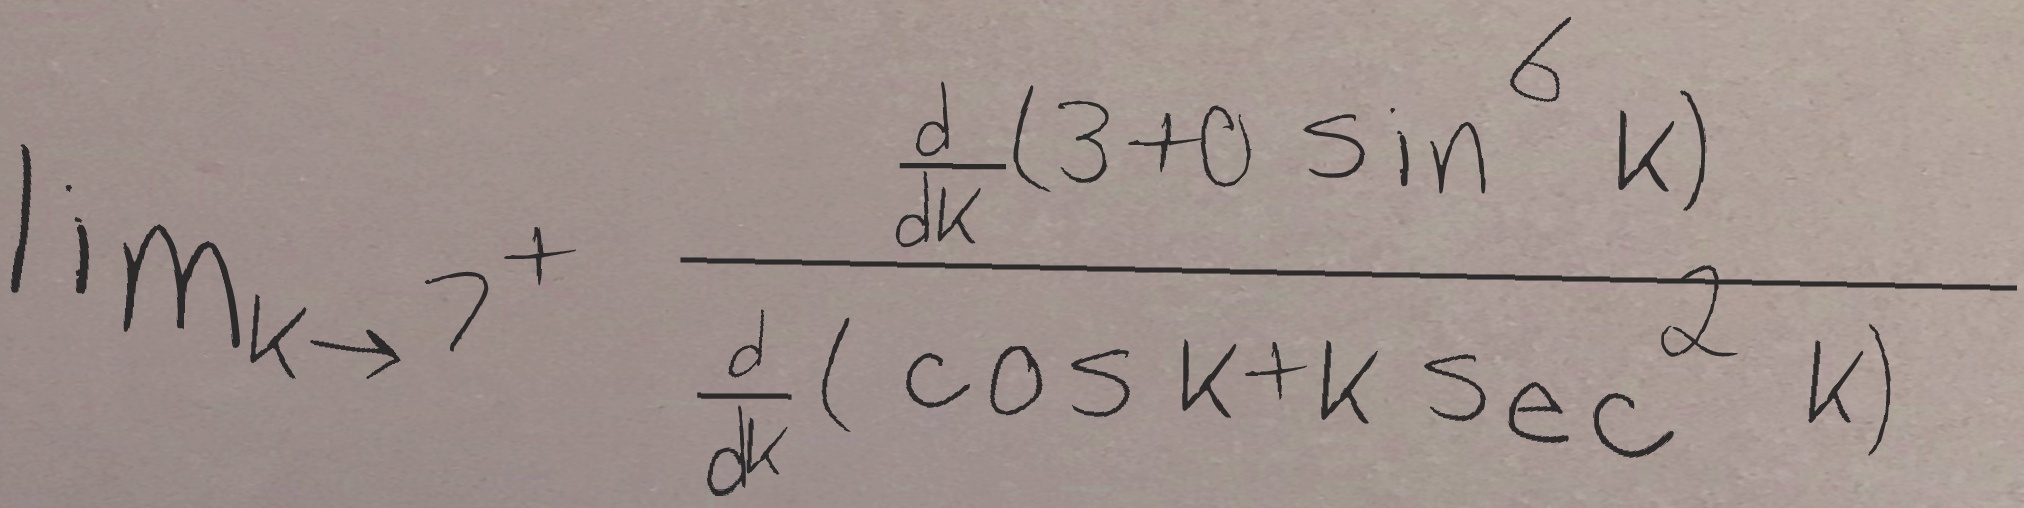 \lim_{k \to 7^+} \frac{\frac{d}{dk}(3+0 \sin^6 k)}{\frac{d}{dk}(\cos k+k \sec^2 k)}